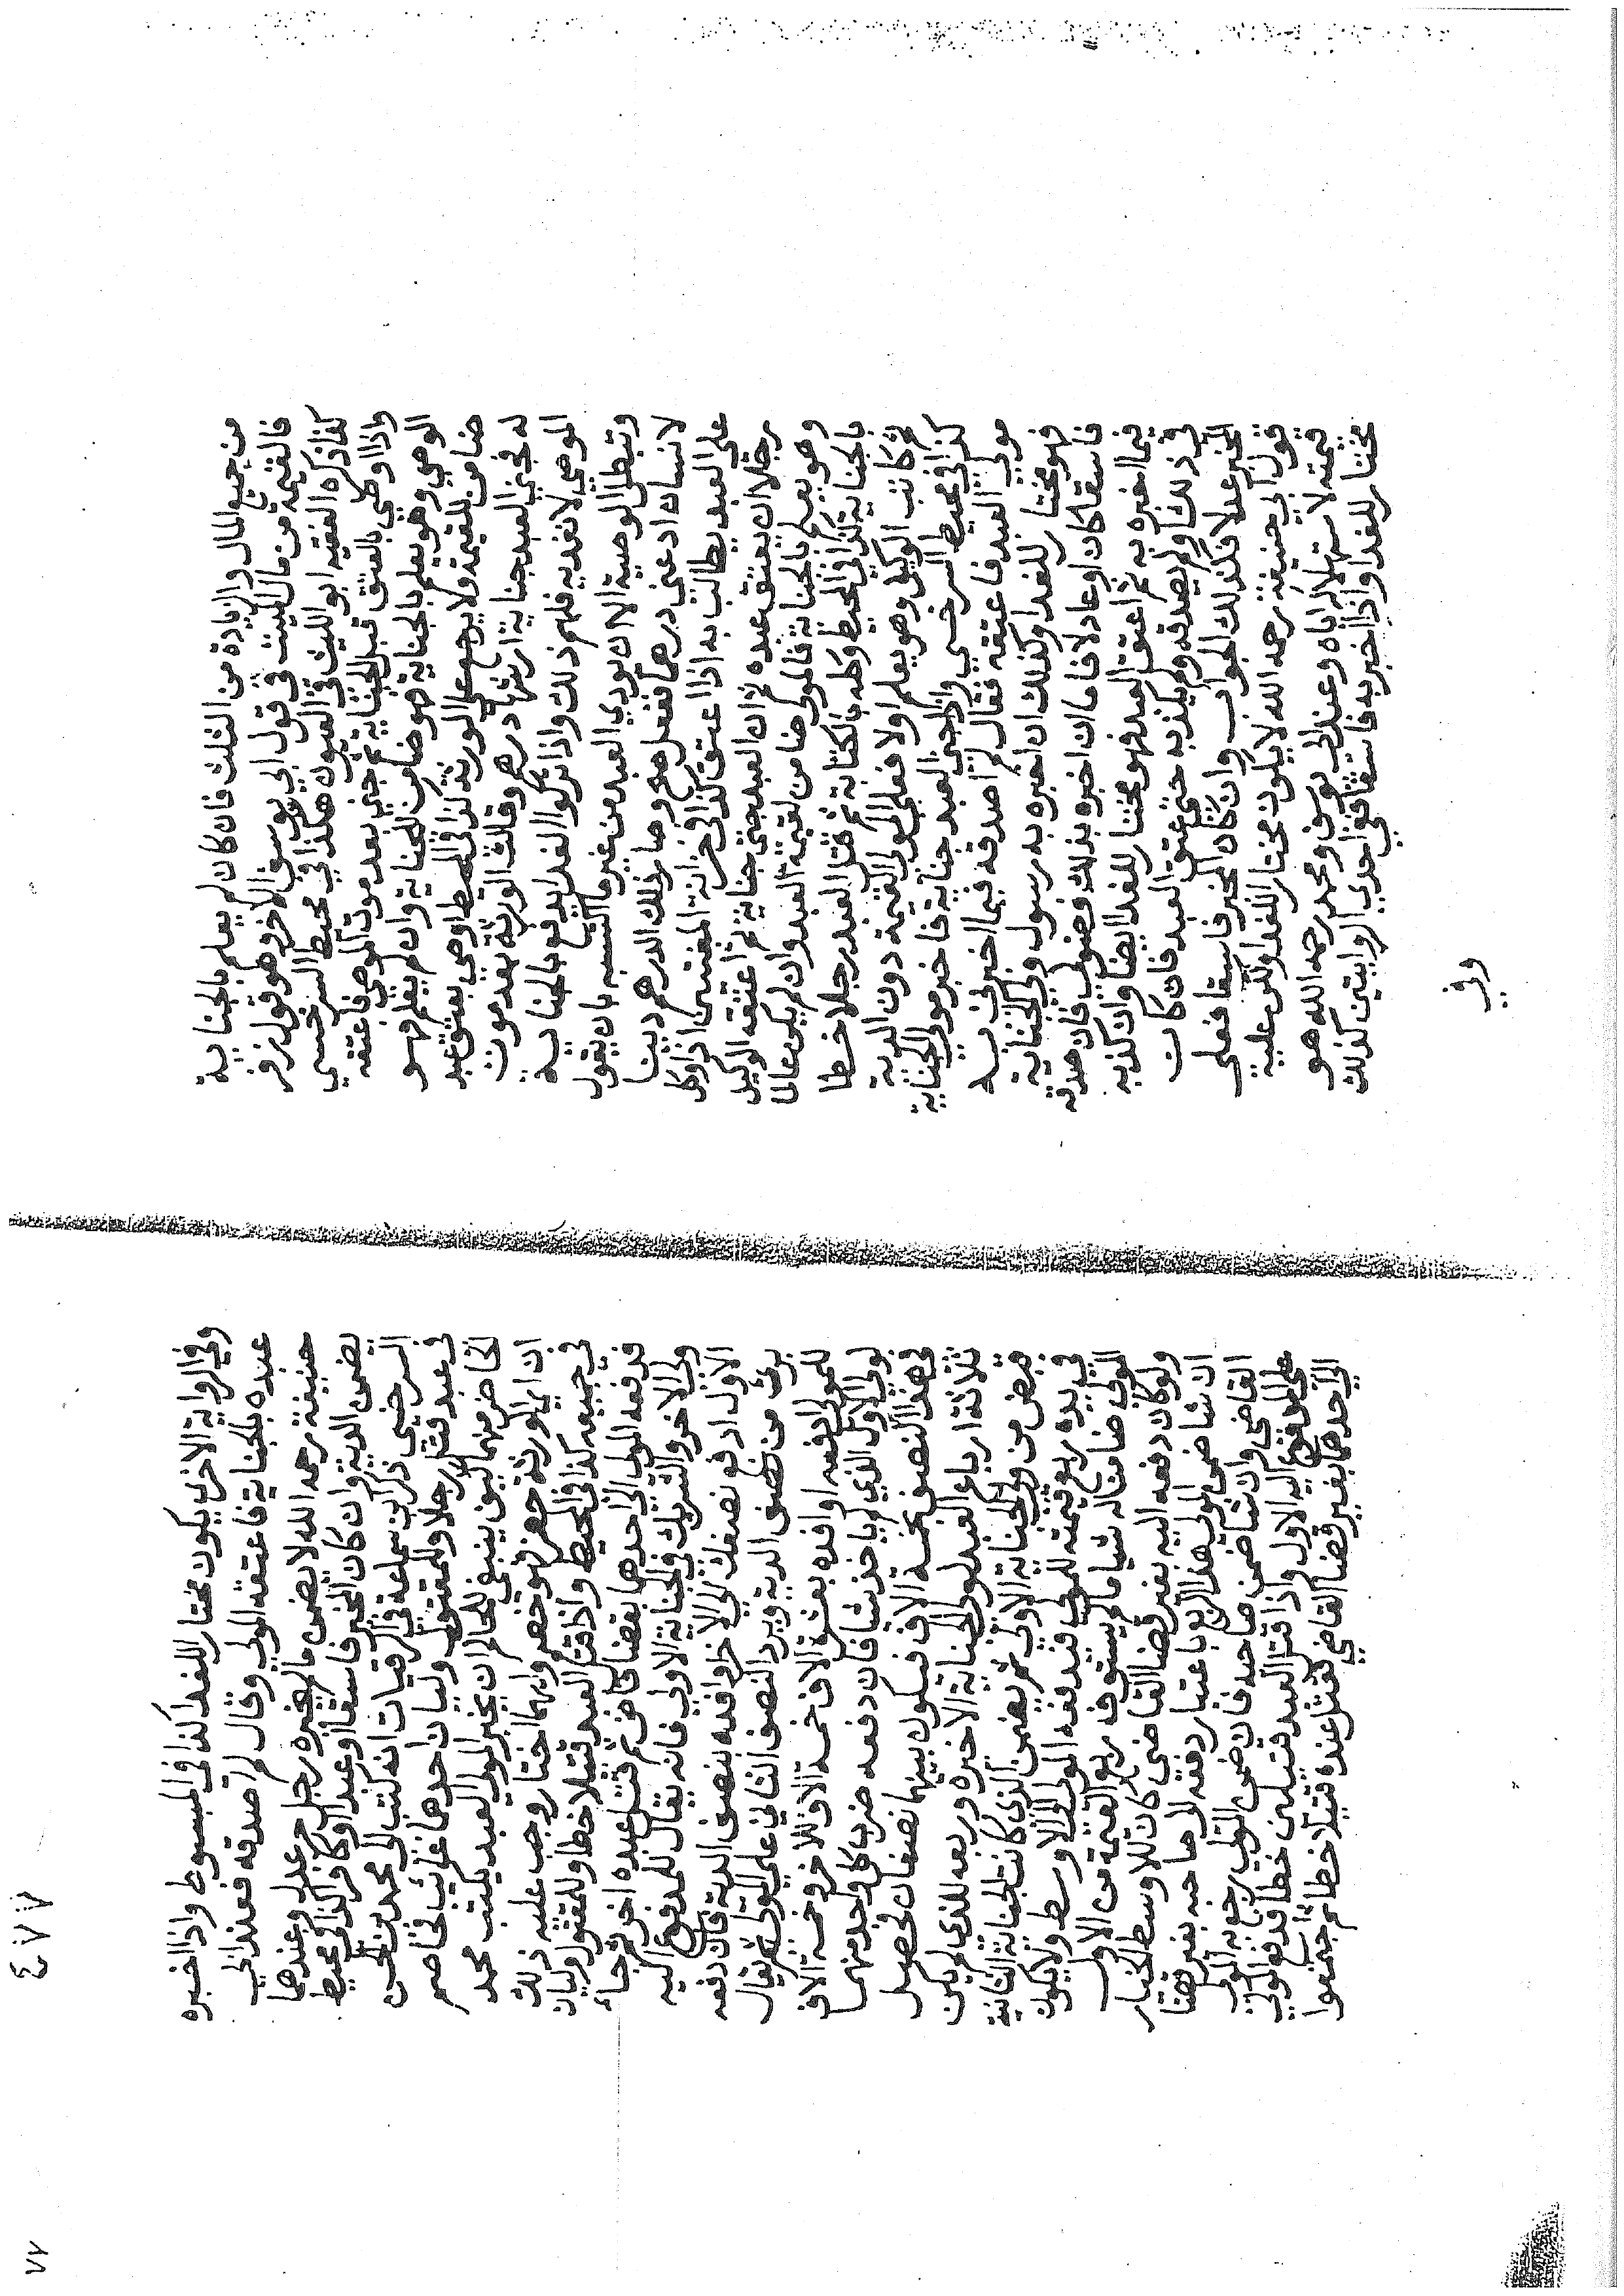 من جميع المال والزيادة من الثلث فان كان لم يعلم بالجناية
فالقيمة من مال الميت في قول ابي يوسف الاخر وهو قول زفر
كذا ذكره الفقيه ابو الليث في العيون هكذا في محيط السرخسي
واذا اوصى بالعتق قبل الجناية ثم جنى بعد موت الموصي فاعتقه
الوصي وهو يعلم بالجناية فهو ضامن للجناية وان لم يعلم فهو
ضامن للقيمة ولا يرجع على الورثة كذا في المبسوط اوصى بعتق عبد
له فجنى العبد جناية ارشها درهم وقالت الورثة بعد موت
الموصي لا نفديه فلهم ذلك واذا تركوا الفدا يدفع بالجناية
وتبطل الوصية الا ان يودي العبد من غير ما اكتسبه بان يقول
لانسان اد عني درهما ففعل صح وصار ذلك الدرهم دينا
على العبد يطالب به اذا عتق كذا في خزانة المفتين اذا وكل
رجلا ان يعتق عبده ثم ان العبد جنى جناية ثم اعتقه الوكيل
وهو يعلم بالجناية فالمولى ضامن لقيمة العبد وان لم يكن عالما
بالجناية كذا في المحيط وكله بالكتابة ثم قتل العبد رجلا خطا
ثم كاتب الوكيل وهو يعلم او لا فعلى المولى القيمة دون الدية
كذا في محيط السرخسي واذا جنى العبد جناية فاخبر مولى الجناية
مولى العبد فاعتقه فقال لم اصدقه فيما اخبرني به
فهو مختار للفدا وكذلك ان اخبره به رسول ولي الجناية
فاسقا كان او عادلا فاما ان اخبره بذلك فضولي فان صدقه
فيما اخبره به ثم اعتق العبد فهو مختار للفدا ايضا وان كذبه
في ذلك او لم يصدقه ولم يكذبه حتى عتق العبد فان كان
المخبر عدلا فكذلك الجواب وان كان المخبر فاسقا فعلى
قول ابي حنيفة رحمه الله لا يكون مختارا للفدا ولكن عليه
قيمته لاستهلاكه اياه وعند ابي يوسف ومحمد رحمهما الله هو
مختار للفدا واذا اخبر به فاسقا ففي احدى الروايتين كذلك
وفي
٤٧٧
وفي الرواية الاخرى يكون مختارا للفدا كذا في المبسوط واذا اخبره
عبده بالجناية فاعتقه المولى وقال لم اصدقه فعند ابي
حنيفة رحمه الله لا يضمن ما لم يخبره رجل حر عدل وعندهما
يضمن الدية وان كان المخبر فاسقا او عبدا او كافرا كذا في محيط
السرخسي ذكر ابن سماعة في الرقيات انه كتب الى محمد بن الحسن
في عبد قتل رجلا وللمقتول وليان احدهما غايب فخاصم
الحاضر منهما كيف ينبغي للحاكم ان يخير المولى العبد فكتب محمد
ان اي الورثة حضر فهو خصم وايهما اختار وجب عليه ذلك
في جميعه كذا في المحيط واذا قتل العبد قتيلا خطا وللمقتول وليان
فدفعه المولى الى احدهما بقضا قاض ثم قتل عنده اخر ثم جاء
ولي الاخر والشريك في الجناية الاولى فانه يقال للمدفوع اليه
الاول ادفع نصفك الى الاخر او افده بنصف الدية فان دفعه
برئ من نصف الدية ويرد النصف الثاني على المولى ثم يقال
للمولى ادفعه او افده بعشرة الاف خمسة الاف للاخر وخمسة الاف
لولي الاول الذي لم ياخذ شيا فان دفعه ضرب كل واحد منهما
في هذا النصف بخمسة الاف فيكون بينهما نصفان فحصل
ثلاثة ارباع العبد لولي الجناية الاخيرة وربعه للذي لم يكن
قبض من ولي الجناية الاولى ثم يضمن الذي كانت الجناية الثانية
في يده ربع قيمته للمولى فيدفعه المولى الى الاوسط ولا يكون
المولى ضامنا له شيا ما لم يستوف ربع القيمة من الاول
ولو كان دفعه اليه بغير قضا القاضي كان للاوسط الخيار
ان شا ضمن المولى هذا الربع باعتبار دفعه الى صاحبه بغير قضا
القاضي وان شا ضمن صاحبه فان ضمن المولى رجع به المولى
على المدفوع اليه الاول واذا قتل العبد قتيلين خطا فدفع المولى
الى احدهما بغير قضا القاضي فقتل عنده قتيلا خطا ثم اجتمعوا
٧٧